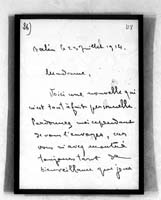 36)
Berlin le 23 juillet 1914.
Madame,
Voici une nouvelle qui
n'est tout à fait personnelle.
Pardonnez moi cependant
de vous l'envoyer, car
vous m'avez montré
toujours tant de
bienveillance que je